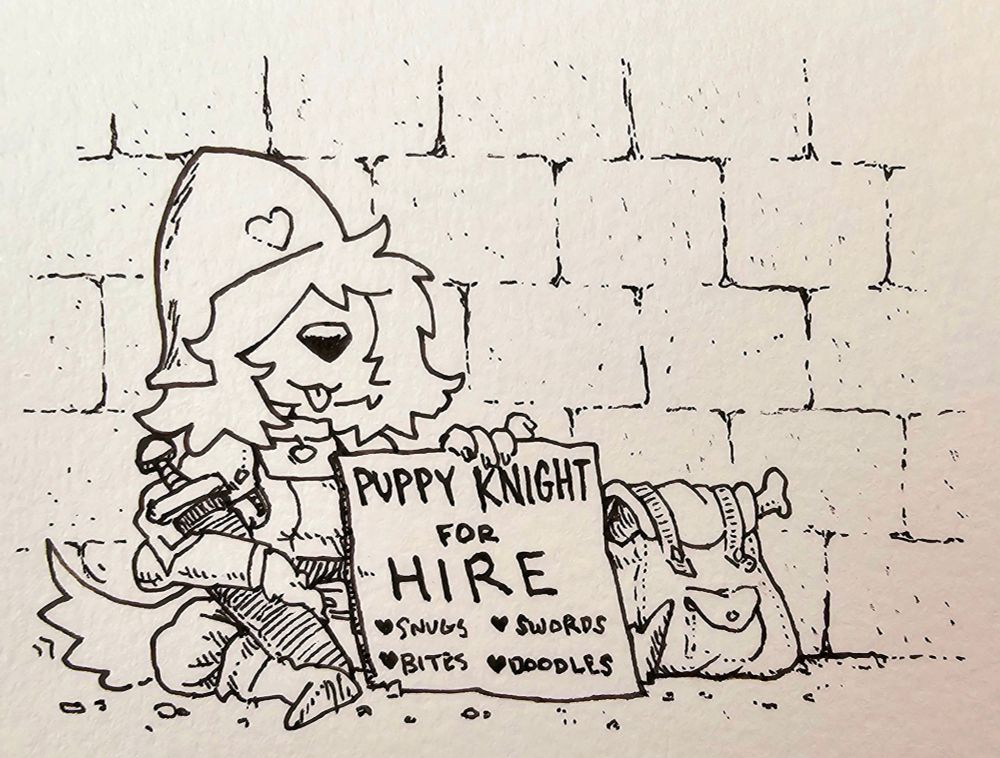 PUPPY KNIGHT
FOR
HIRE
♥SNUGS ♥SWORDS
♥BITES ♥DOODLES